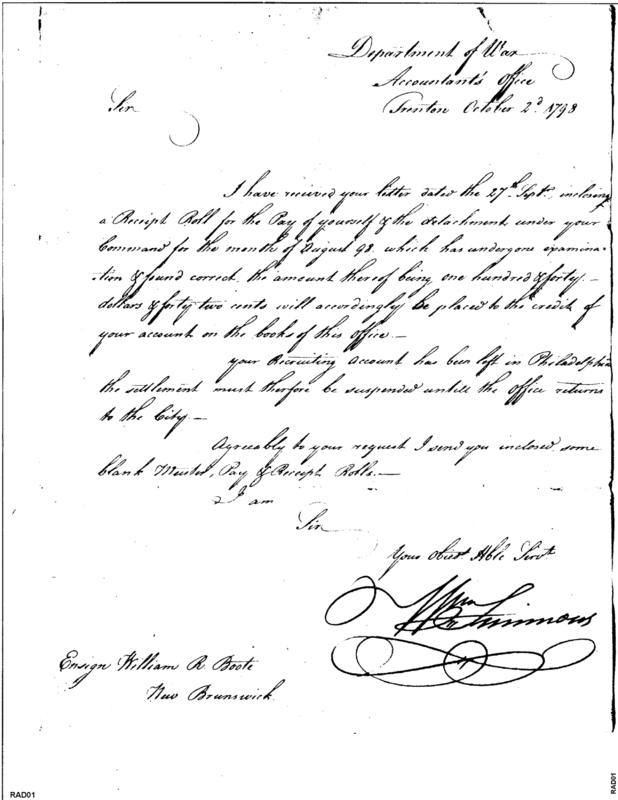 Department of War
Accountant's Office
Trenton October 2d 1798
Sir
I have received your letter dated the 27th Sept. inclosing
a Receipt Roll for the Pay of yourself & the detachment under your
Command for the month of August 98. which has undergone examina-
-tion & found correct, the amount thereof being one hundred & forty -
dollars & forty two cents will accordingly be placed to the credit of
your account on the books of this office -
your Recruiting Account has been left in Philadelphia
the settlement must therfore be suspended untill the office returns
to the City. -
Agreeably to your request I send you inclosed some
blank Muster, Pay & Receipt Rolls. -
I am
Sir
Your Obedt Hble Servt
Wm Simmons
Ensign William R. Boote
New Brunswick
RAD01
RAD01